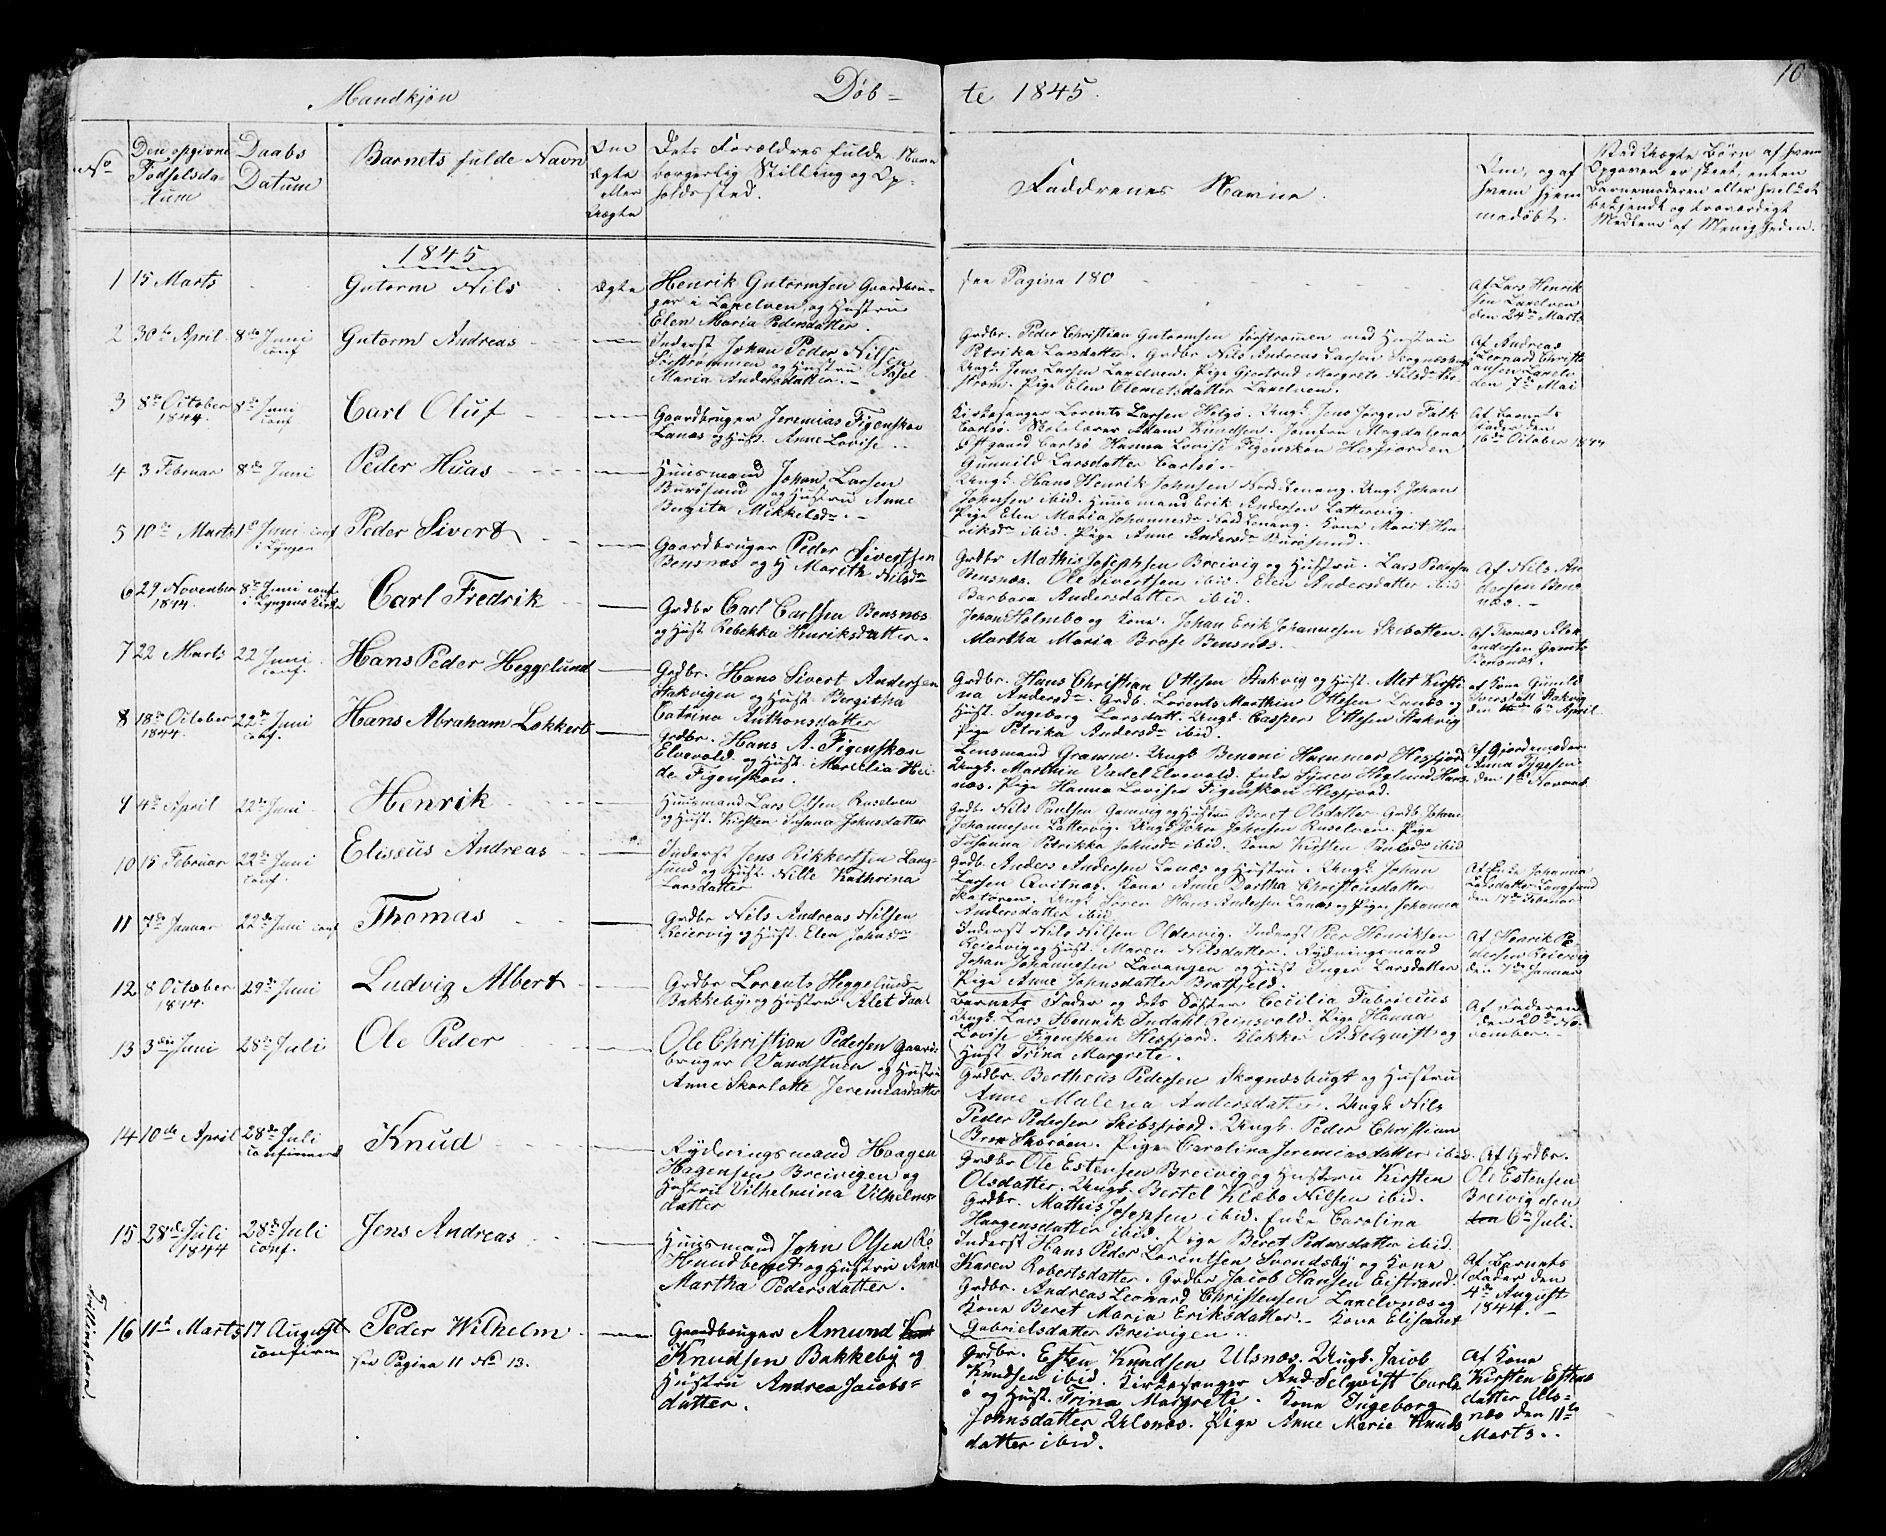 Mandkjøn Døb- te 1845. 10
No
Den opgivne Fødselsda-tum
Daabs Datum
Barnets fulde Navn
Om ægte eller Uægte
Dets Forældres fulde Navn borgerlig Stilling og Op-holdssted.
Faddrenes Navne.
Om, og af hvem hjem-medøbt.
Ved Uægte Børn af hvem Opgaven er skeet, enten Barnemoderen eller hvilket bekjendt og troværdigt Medlem af Menigheden.
1845
1 15 Marts
Gutorm Nils
ægte
Henrik Gutormsen Gaardbru-
ger i Lanelven og Hustru
Elen Maria Pedersdatter.
see Pagina 180
Af Lars Henrik-
sen Lanelven
den 24de Marts
2 30te April 8de Juni
conf
Gutorm Andreas
Inderst Johan Peder Nilsen
og Hustru
Maria Andersdatter.
Grdbr. Peder Christian Gutormsen med Hustru
Petrika Larsdatter. Grdbr Nils Andreas Larsen
Ungk. Jens Larsen Lanelven. Pige Gjertrud Margrete Nilsdr
strøm. Pige Elen Clemetsdatter Lanelven.
Af Andreas
Leonard Christi-
ansen
den 7de Mai
3 8de October 8de Juni
1844. conf
Carl Oluf
Gaardbruger Jeremias Figenskou
Lanæs og Hust. Anne Lovise.
Kirkesanger Lorents Larsen Helgø. Ungk. Jens Jørgen Falk
Carlsø. Skolelærer Adam Knudsen. Jomfru Magdalena
Østgaard Carlsø Hanna Lovise Figenskou Hessfjorden
Gunnild Larsdatter Carlsø.
Af Barnets
Fader den
16de October 1844
4 3 Februar 8de Juni
Peder Huas
Huusmand Johan Larsen
og Hustru Anne
Bergita Mikkelsdr.
Ungk. Hans Henrik Johnsen Nord-Lenang. Ungk. Johan
Johnsen ibid. Huusmand Erik Andersen Lattervig.
Pige Elen Maria Johannesdr Nord Lenang. Kone Marit Hen-
riksdr ibid. Pige Anne Andersdr
5 10de Marts 1st Juni conf
i Lyngen
Peder Sivert
Gaardbruger Peder Sivertsen
Bensnæs og H Marith Nilsdr
Grdbr Mathis Josephsen Breivig og Hustru. Lars Pedersen
Bensnæs. Ole Sivertsen ibid. Elen Andersdatter ibid
Barbara Andersdatter ibid.
Af Nils An-
dersen Bens-
næs.
6 29 November 8de Juni conf
1844. i Lyngens Kirke
Carl Fredrik
Grdbr Carl Carlsen Bensnæs
og Hust Rebekka Henriksdatter.
Johan Holmbo og Kone. Johan Erik Johannesen Skibotten.
Martha Maria Brose Bensnæs.
Af Thomas
Bensnæs.
7 22 Marts 22 Juni
conf.
Hans Peder Heggelund
Grdbr. Hans Sivert Andersen
Stakvigen og Hust. Bergitha
Catrina Anthonsdatter
Grdbr. Hans Christian Ottesen Stakvig og Hust. Alet Kirsti-
na Andersdr. Grdb. Lorents Marthin Ottesen og
Hust. Ingeborg Larsdatt. Ungk Casper Ottesen Stakvig
Pige Petrika Andersdr ibid.
af Kone Gunild
Stakvig
den 6te April.
8 18de October 22de Juni
1844. conf.
Hans Abraham Lokkert
Grdbr. Hans A. Figenskou
Elvevold og Hust. Marselia Hei-
de Figenskou.
Lensmand Gramm. Ungk Benoni Hammer Hessfjord
Ungk. Marthin Vadel Elvevold. Enke Synev Heglund
næs. Pige Hanna Lovise Figenskou Hessfjord.
Af Gjordemoder
Anna
den 1ste Novemb.
9 4de April 22de Juni
Henrik
Huusmand Lars Olsen Ruselven
og Hust. Kirsten Susana Johnsdatter
Grdbr Nils Paulsen og Hustru Beret Olsdatter. Grdb. Johan
Johannesen Lattervig. Ungk. John Johnsen Ruselven. Pige
Susanna Petrikka Johnsdr ibid. Kone Kirsten Paulsdr ibid
10 15 Februar 22de Juni
conf.
Elisseus Andreas
Inderst Jens Rikkertsen Lang-
sund og Hust. Nille Kathrina
Larsdatter
Grdb. Anders Andersen Lanæs og Hustru. Ungk. Johan
Larsen Qvitnæs. Kone Anne Dortha Christensdatter
Skatøren. Ungk Søren Hans Andersen Lanæs og Pige Johanna
Andersdatter ibid
Af Enke Johanna
Larsdatter Langsund
den 17de Februar
11 7de Januar 22de Juni conf
Thomas
Grdbr Nils Andreas Nilsen
Reiervig og Hust. Elen Johnsdr
Inderst Nils Nilsen Oldervig. Inderst Peer Henriksen
Reiervig og Hust. Maren Nilsdatter. Rydningsmand
Johan Johannesen Lavangen og Hust Inger Larsdatter
Pige Anne Johnsdatter Bratfjeld.
Af Henrik Pe-
dersen Reiervig
den 7de Januar
12 8 October 29de Juni
1844.
Ludvig Albert
Grdbr Lorents Heggelund
Bakkeby og Hustru Alet
Barnets Fader og dets Søster Cecilia Fabricius
Ungk. Lars Henrik Indahl Reinsvold. Pige Hanna
Lovise Figenskou Hessfjord. Klokker A. Selqvist og
Hust Trina Margrete.
Af Faderen
den 20de No-
vember
13 3die Juni 28de Juli
Ole Peder
Ole Christian Pedersen Gaard-
bruger Vandstuen og Hustru
Anne Skarlotte Jeremiasdatter
Grdbr. Bertheus Pedersen Skognæsbugt og Hustru
Anne Malena Andersdatter. Ungk Nils
Peder Pedersen Skibsfjord. Ungk. Peder Christian
Brox Skorøen. Pige Carolina Jeremiasdatter ibid.
14 10de April 28de Juli
confirmered
Knud
Rydningsmand Haagen
Hagensen Breivigen og
Hustru Vilhelmina Vilhelms-
datter
Grdbr Ole Estensen Breivig og Hustru Kirsten
Olsdatter. Ungk. Bertel Klæbo Nilsen ibid.
Grdbr. Mathis Josepsen ibid. Enke Carolina
Haagensdatter ibid. Pige Beret Pedersdatter ibid.
Af Grdbr.
Ole Estensen
Breivig den
6te Juli.
15 28de Juli 28de Juli
1844 conf.
Jens Andreas
Huusmand John Olsen
Hundberget og Hustru Anne
Martha Pedersdatter.
Inderst Hans Peder Lorentsen Svendsby og Kone
Karen Robertsdatter. Grdbr Jacob Hansen Eistrand.
Grdbr. Andreas Leonard Christensen Lanelvnæs og
Kone Beret Maria Eriksdatter. Kone Elisabet
Gabrielsdatter Breivigen.
Af Barnets
Fader den
4de August
1844.
Tvillingbørn
16 11te Marts 17 August
confirm
Peder Wilhelm
see Pagina 11 No 13.
Gaardbruger Amund
Knudsen Bakkeby og
Hustru Andrea Jacobs-
datter.
Grdbr. Esten Knudsen Ulsnæs. Ungk. Jacob
Knudsen ibid. Kirkesanger And. Selqvist Carls-
ø og Hust. Trina Margrete. Kone Ingeborg
Johnsdatter Ulsnæs. Pige Anne Marie Knuds
datter ibid.
Af Kone
Kirsten Estens
datter Uls-
næs den 11te
Marts.